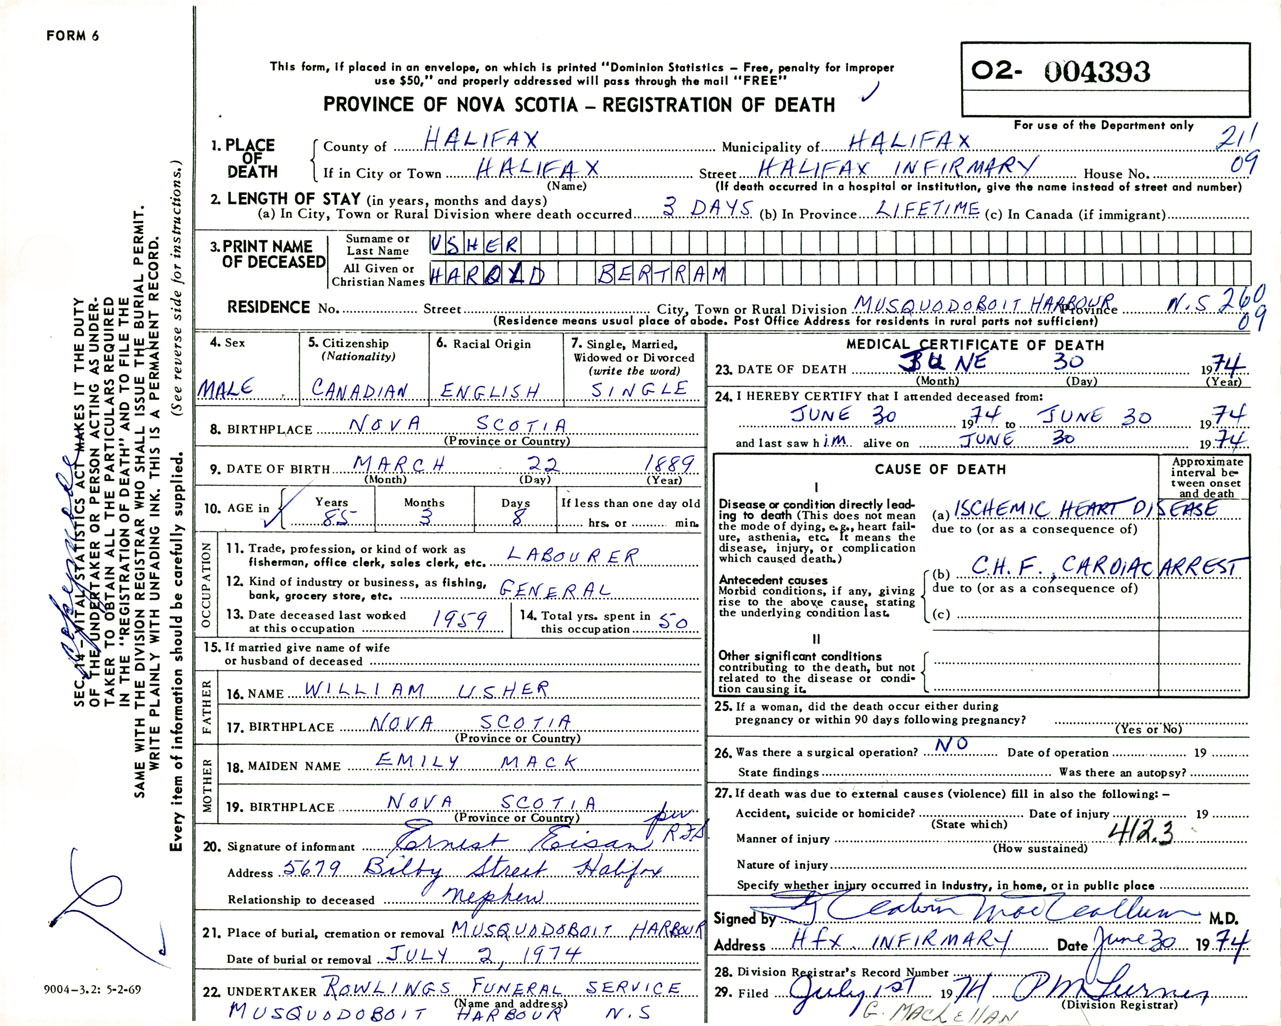 FORM 6
This form, if placed in an envelope, on which is printed "Dominion Statistics – Free, penalty for improper
use $50," and properly addressed will pass through the mail "FREE"
PROVINCE OF NOVA SCOTIA – REGISTRATION OF DEATH
O2- 004393
For use of the Department only
211
09
1. PLACE OF DEATH
County of HALIFAX Municipality of HALIFAX
If in City or Town HALIFAX Street HALIFAX INFIRMARY House No.
(Name) (If death occurred in a hospital or institution, give the name instead of street and number)
2. LENGTH OF STAY (in years, months and days)
(a) In City, Town or Rural Division where death occurred 3 DAYS (b) In Province LIFETIME (c) In Canada (if immigrant)
3. PRINT NAME OF DECEASED
Surname or Last Name USHER
All Given or Christian Names HAROLD BERTRAM
RESIDENCE No. Street City, Town or Rural Division MUSQUODOBOIT HARBOUR Province N.S 260
09
(Residence means usual place of abode. Post Office Address for residents in rural parts not sufficient)
4. Sex
MALE
5. Citizenship
(Nationality)
CANADIAN
6. Racial Origin
ENGLISH
7. Single, Married,
Widowed or Divorced
(write the word)
SINGLE
8. BIRTHPLACE NOVA SCOTIA
(Province or Country)
9. DATE OF BIRTH MARCH 22 1889
(Month) (Day) (Year)
10. AGE in
Years 85
Months 3
Days 8
If less than one day old
hrs. or min.
OCCUPATION
11. Trade, profession, or kind of work as
fisherman, office clerk, sales clerk, etc. LABOURER
12. Kind of industry or business, as fishing,
bank, grocery store, etc. GENERAL
13. Date deceased last worked
at this occupation 1959
14. Total yrs. spent in
this occupation 50
15. If married give name of wife
or husband of deceased
FATHER
16. NAME WILLIAM USHER
17. BIRTHPLACE NOVA SCOTIA
(Province or Country)
MOTHER
18. MAIDEN NAME EMILY MACK
19. BIRTHPLACE NOVA SCOTIA
(Province or Country)
per
20. Signature of informant Ernest Eisan
Address 5679 Bilby Street Halifax
Relationship to deceased nephew
21. Place of burial, cremation or removal MUSQUODOBOIT HARBOUR
Date of burial or removal JULY 2, 1974
22. UNDERTAKER ROWLINGS FUNERAL SERVICE
(Name and address)
MUSQUODOBOIT HARBOUR N.S
MEDICAL CERTIFICATE OF DEATH
23. DATE OF DEATH JUNE 30 1974
(Month) (Day) (Year)
24. I HEREBY CERTIFY that I attended deceased from:
JUNE 30 1974 to JUNE 30 1974
and last saw him alive on JUNE 30 1974
CAUSE OF DEATH
Approximate
interval be-
tween onset
and death
I
Disease or condition directly lead-
ing to death (This does not mean
the mode of dying, e.g., heart fail-
ure, asthenia, etc. It means the
disease, injury, or complication
which caused death.)
(a) ISCHEMIC HEART DISEASE
due to (or as a consequence of)
Antecedent causes
Morbid conditions, if any, giving
rise to the above cause, stating
the underlying condition last.
(b) C.H.F., CARDIAC ARREST
due to (or as a consequence of)
(c)
II
Other significant conditions
contributing to the death, but not
related to the disease or condi-
tion causing it.
25. If a woman, did the death occur either during
pregnancy or within 90 days following pregnancy?
(Yes or No)
26. Was there a surgical operation? NO Date of operation 19
State findings Was there an autopsy?
27. If death was due to external causes (violence) fill in also the following: –
Accident, suicide or homicide? Date of injury 19
(State which)
412.3
Manner of injury
(How sustained)
Nature of injury
Specify whether injury occurred in industry, in home, or in public place
Signed by MacCallum M.D.
Address Hfx INFIRMARY Date June 30 1974
28. Division Registrar's Record Number
29. Filed July 1st 1974
(Division Registrar)
G. MacLellan
SEC. 14 – VITAL STATISTICS ACT MAKES IT THE DUTY
OF THE UNDERTAKER OR PERSON ACTING AS UNDER-
TAKER TO OBTAIN ALL THE PARTICULARS REQUIRED
IN THE "REGISTRATION OF DEATH" AND TO FILE THE
SAME WITH THE DIVISION REGISTRAR WHO SHALL ISSUE THE BURIAL PERMIT.
WRITE PLAINLY WITH UNFADING INK. THIS IS A PERMANENT RECORD.
Every item of information should be carefully supplied. (See reverse side for instructions.)
9004-3.2: 5-2-69